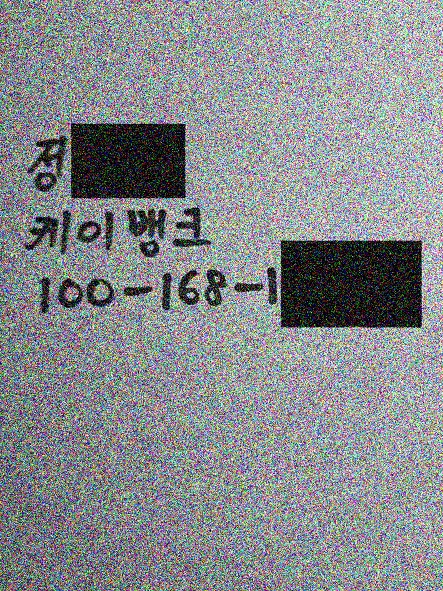 정
케이뱅크
100-168-1